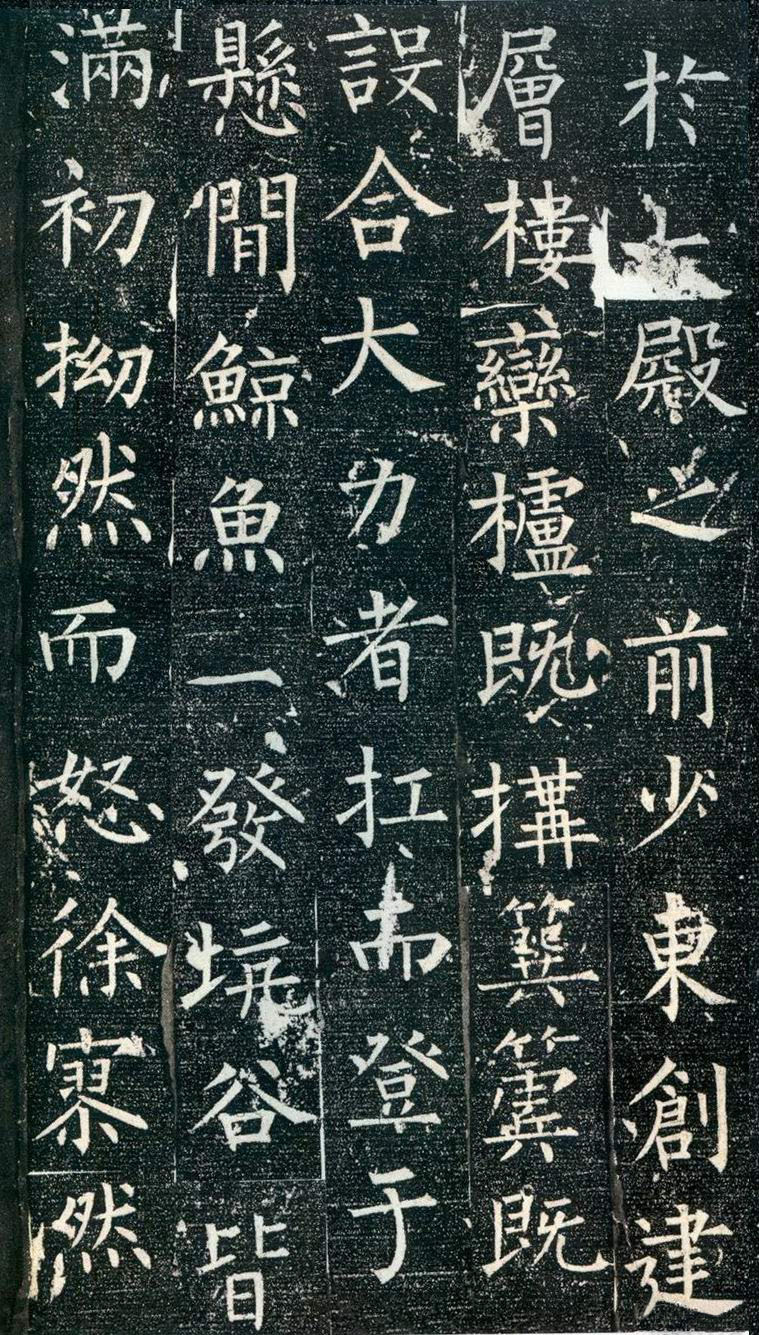 於大殿之前少東創建
層樓欒櫨既搆簨簴既
設合大力者扛而登于
懸間鯨魚一發坑谷皆
滿初拗然而怒徐寥然